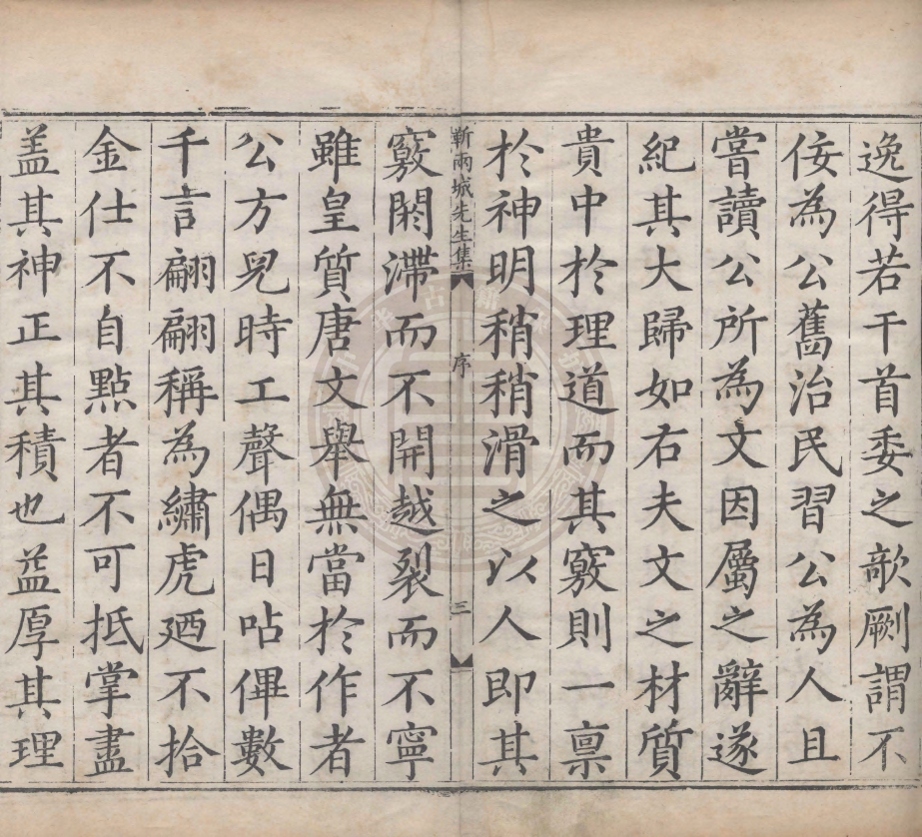 逸得若干首委之歌劂謂不
佞為公舊治民習公為人且
嘗讀公所為文因屬之辭遂
紀其大歸如右夫文之材質
貴中於理道而其竅則一禀
於神明稍稍滑之以人即其
靳兩城先生集
序
三
竅閼滯而不開越裂而不寧
雖皇質唐文舉無當於作者
公方兒時工聲偶日呫俾數
千言翩翩稱為繡虎廼不拾
金仕不自點者不可抵掌盡
盖其神正其積也益厚其理